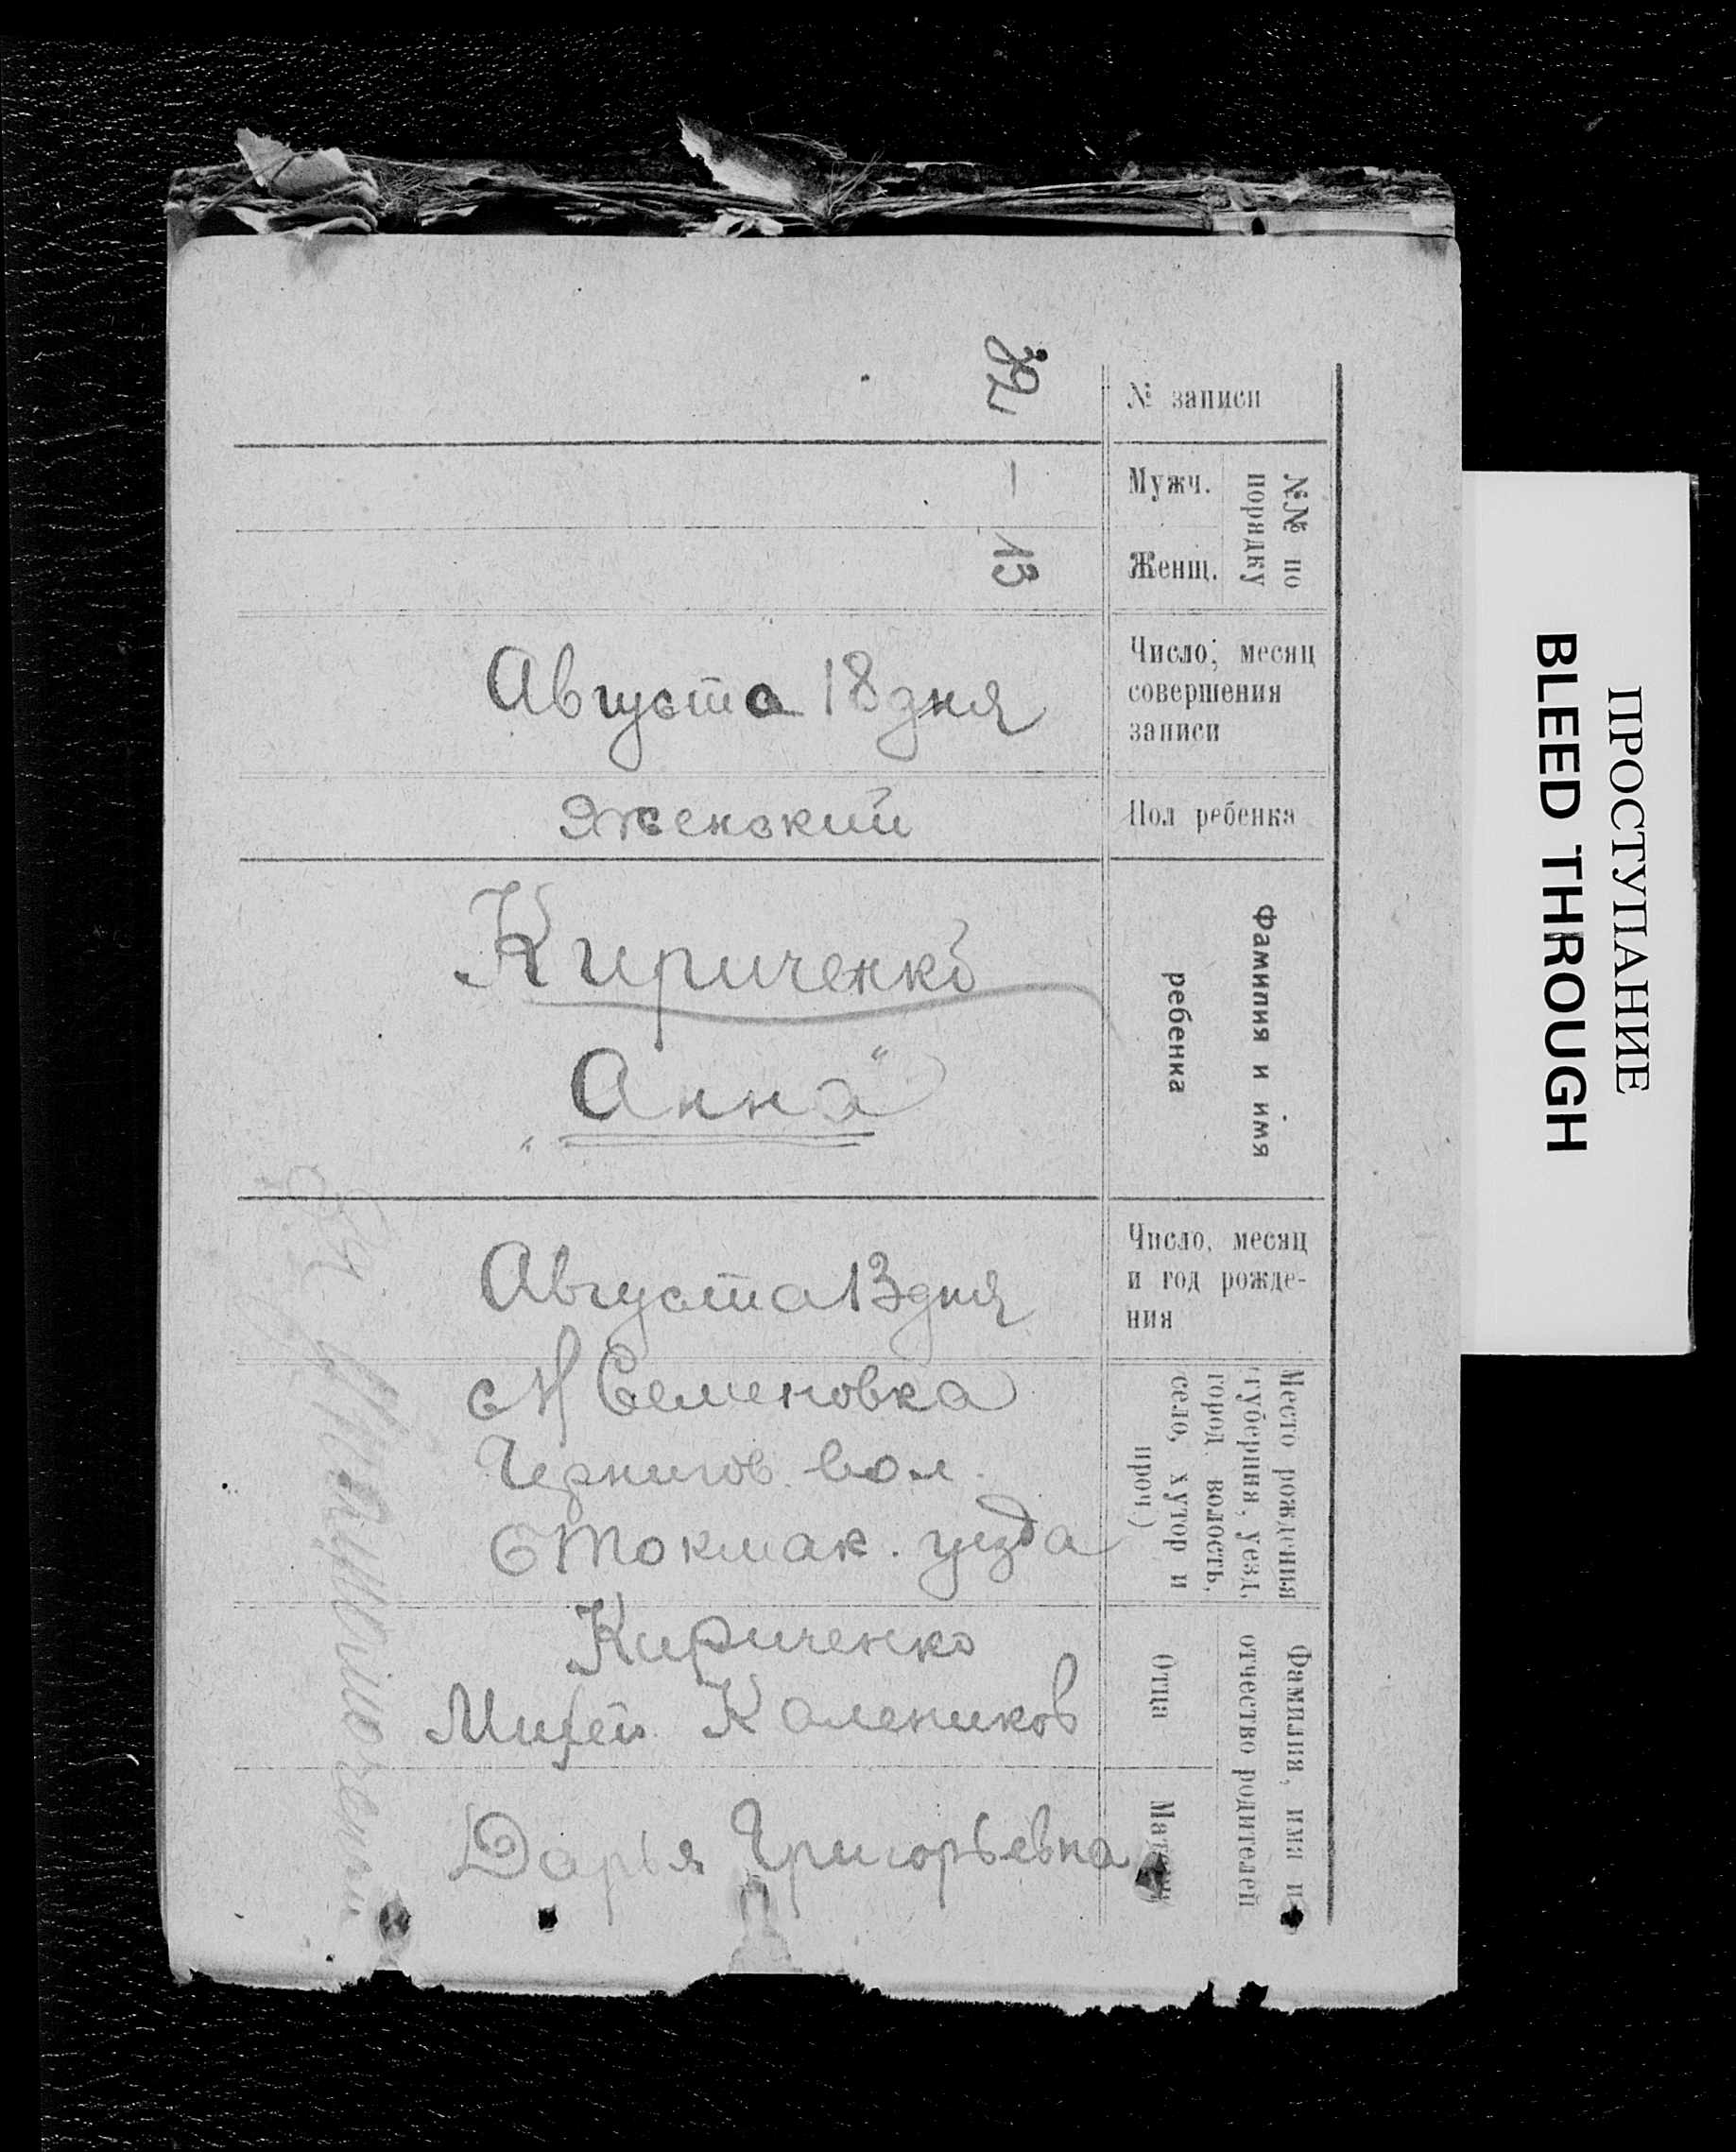 № записи
32
№№ по
порядку
Мужч.
—
Женщ.
13
Число, месяц
совершения
записи
Августа 18 дня
Пол ребенка
Женский
Фамилия и имя
ребенка
Кириченко
„Анна“
Число, месяц
и год рожде-
ния
Августа 13 дня
Место рождения
(губерния, уезд,
город волость,
село, хутор и
проч.)
с Н Семеновка
Чернигов. вол.
Б Токмак. уезда
Фамилия, имя и
отчество родителей
Отца
Кириченко
Михей Калеников
Матери
Дарья Григорьевна
ПРОСТУПАНИЕ
BLEED THROUGH